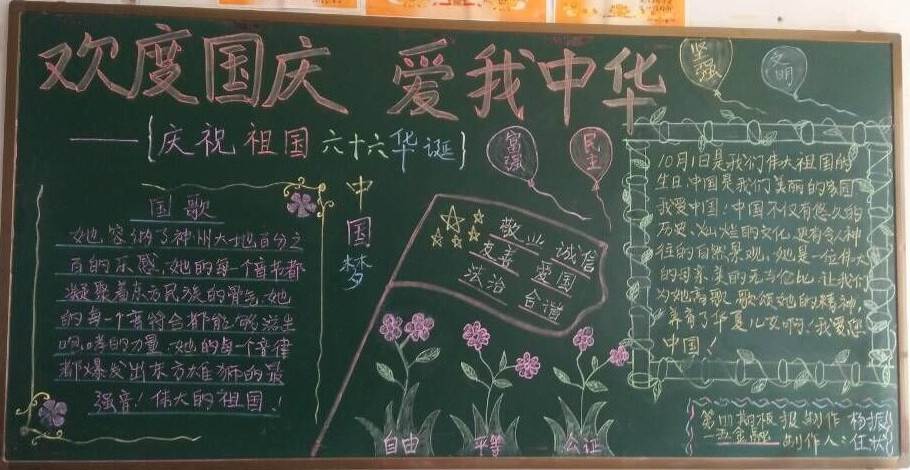 欢度国庆 爱我中华
——{庆祝祖国六十六华诞}
坚强
文明
富强
民主
国歌
她,容纳了神州大地百分之
百的乐感,她的每一个音节都
凝聚着东方民族的骨气,她
的每一个音符合都能够滋生
呐喊的力量,她的每一个音律
都爆发出东方雄狮的最
强音!伟大的祖国!
中国梦
敬业 诚信
友善 爱国
法治 合谐
自由 平等 公证
10月1日是我们伟大祖国的
生日,中国是我们美丽的家园
我爱中国!中国不仅有悠久的
历史,灿烂的文化,还有令人神
往的自然景观,她是一位伟大
的母亲,美的无与伦比,让我们
为她高歌,歌颂她的精神,
养育了华夏儿女啊!我爱您
中国!
第四期板报 制作 杨振
制作人:任